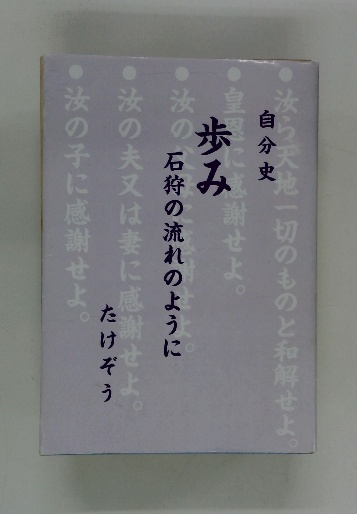 自分史
歩み
石狩の流れのように
たけぞう
汝ら天地一切のものと和解せよ。
皇恩に感謝せよ。
汝の
汝の夫又は妻に感謝せよ。
汝の子に感謝せよ。